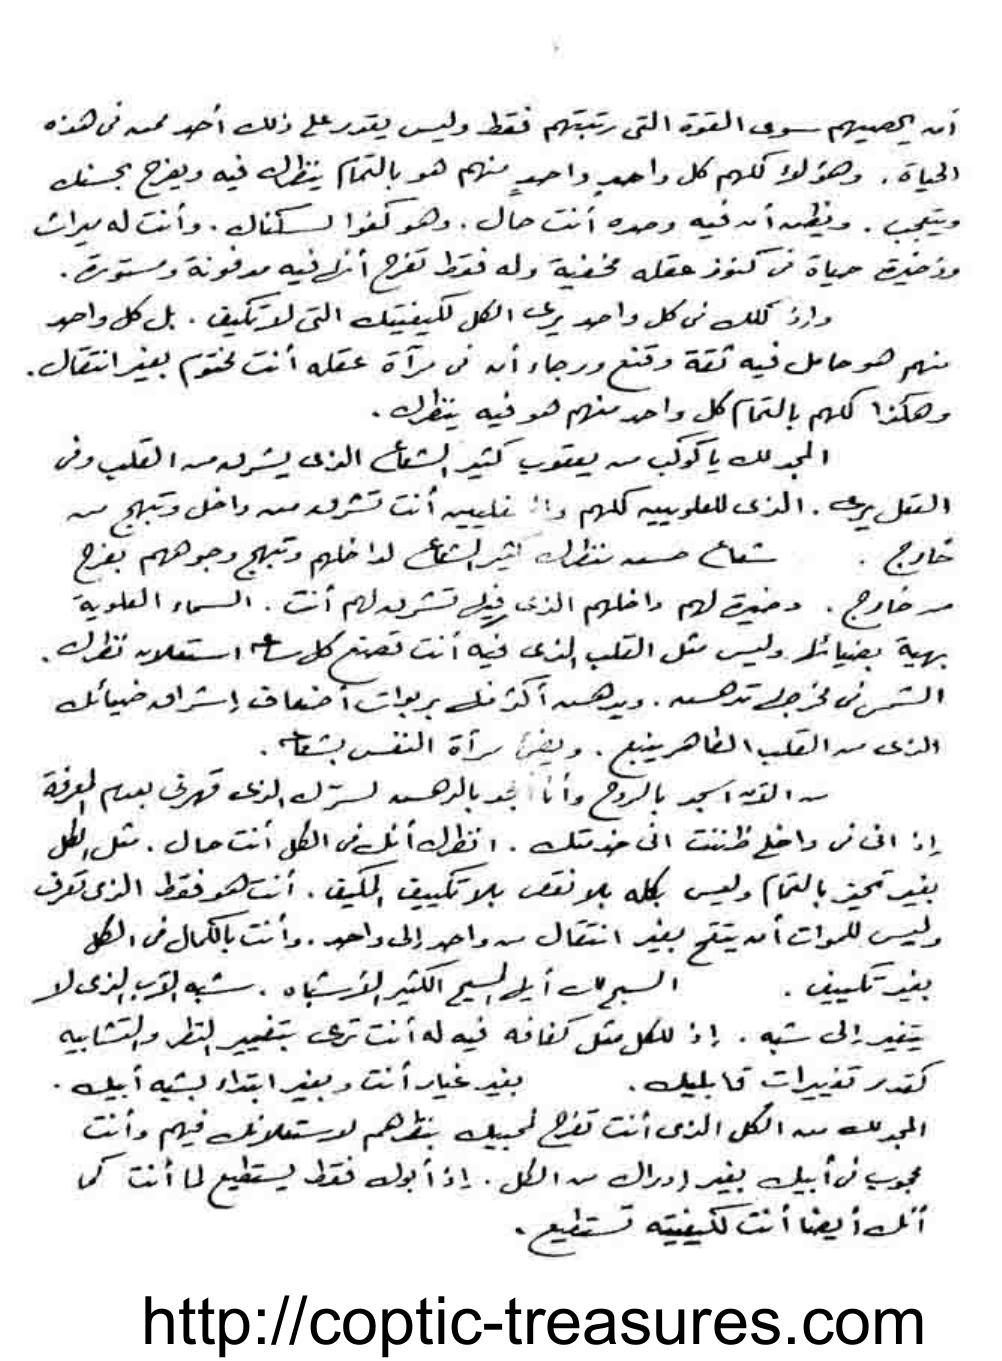 أن يحصيهم سوى القوة التى رتبتهم فقط وليس يقدر على ذلك أحد ممن فى هذه
الحياة . وهؤلاء كلهم كل واحد واحد منهم هو بالتمام ينظرك فيه ويفرح بحسنك
ويتعجب . ويظن أن فيه وحده أنت حال . وهو كفوا لسكناك . وأنت له ميراث
وذخيرة حياة فى كنوز عقله مخفية وله فقط تفرح أنك فيه مدفونة ومستورة .
وإذ كلك فى كل واحد يرى الكل لكيفيتك التى لا تكيف . بل كل واحد
منهم هو حامل فيه ثقة وقنع ورجاء أن فى مرآة عقله أنت مختوم بغير انتقال .
وهكذا كلهم بالتمام كل واحد منهم هو فيه ينظرك .
المجد لك يا كوكب من يعقوب كثير الشعاع الذى يشرق من القلب وفى
العقل يرى . الذى للعلويين كلهم أنت تشرق من داخل وتبهج من
خارج . شعاع حسن منظرك كثير الشعاع لداخلهم وتبهج وجوههم بفرح
من خارج . ذخيرة لهم داخلهم الذى تشرق لهم أنت . السماء العلوية
بهية بضيائك وليس مثل القلب الذى فيه أنت تصنع كل ساعة استعلان نظرك .
الشمس فى مخرجك تدهش . ويدهش أكثر منك بربوات أضعاف إشراق ضيائك
الذى من القلب الطاهر ينبع . ويضئ مرآة النفس بشعاعك .
من الآن اسجد بالروح وأنا بالدهش لسرك الذى قهرنى بعدم المعرفة
إذ انى فى داخلى ظننت انى خدمتك . انظرك أنك فى الكل أنت حال . مثل الكل
بغير تحيز بالتمام وليس بكله بلا نقص بلا تكييف المكيف . أنت هو فقط الذى تعرف
وليس للموات أن ينتقل بغير انتقال من واحد إلى واحد . وأنت بالكمال فى الكل
بغير تكييف . السبح لك أيها المسيح الكثير الأشباه . شبه الآب الذى لا
يتغير إلى شبه . إذ للكل مثل كفافه فيه له أنت ترى بتغيير النظر والتشابيه
كقدر تغييرات قابليك . بغير غيار أنت وبغير ابتداء بشبه أبيك .
المجد لك من الكل الذى أنت تفرح لمحبيك بنظرهم لاستعلانك فيهم وأنت
محجوب فى أبيك بغير إدراك من الكل . إذ أبوك فقط يستطيع لما أنت كما
أنك أيضا أنت لكيفيته تستطيع .
http://coptic-treasures.com